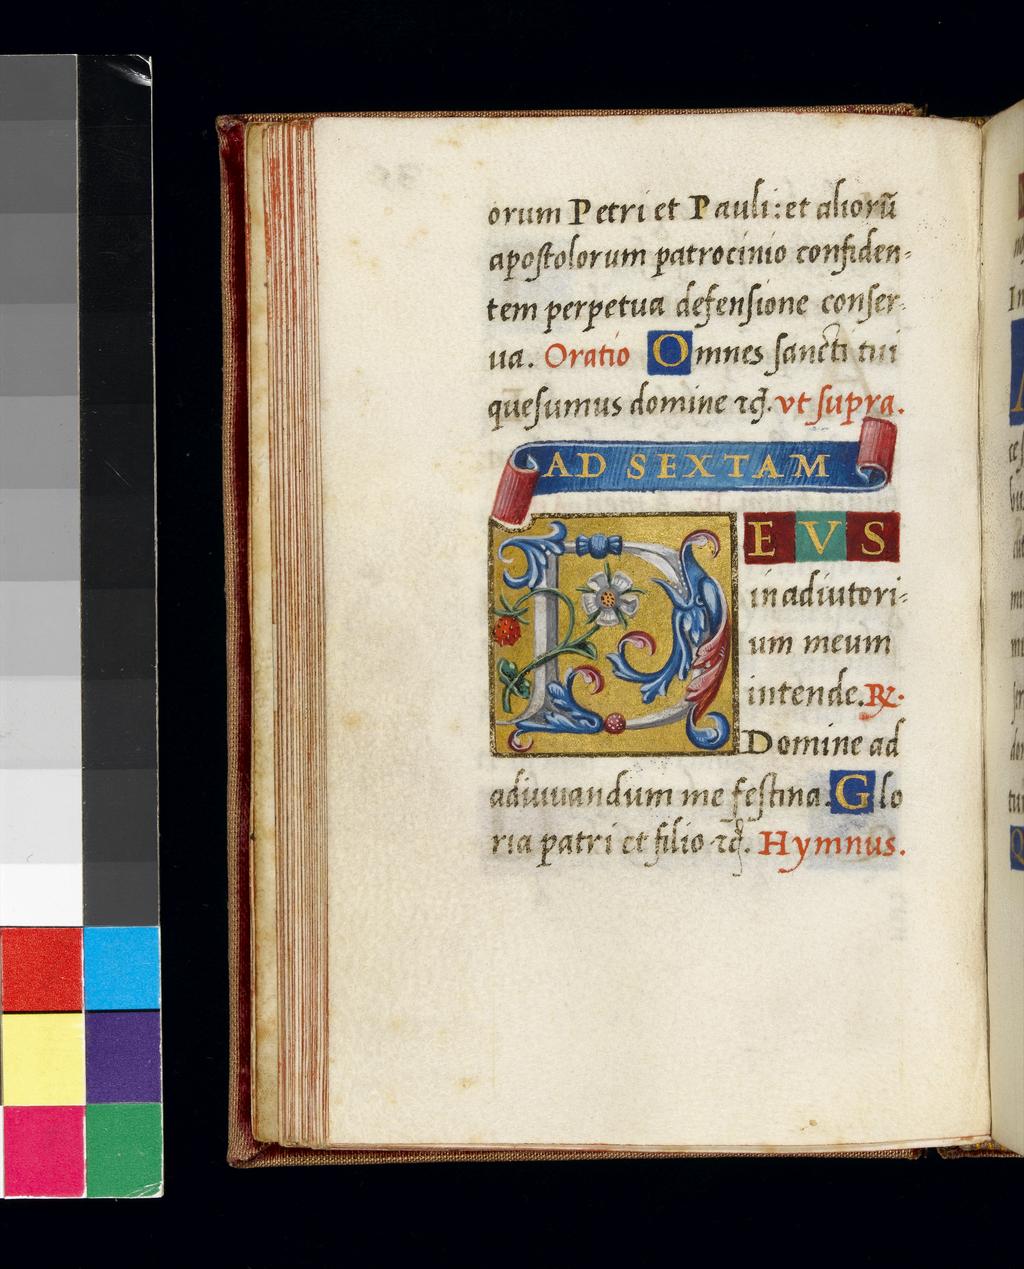 orum Petri et Pauli: et aliorū
apoſtolorum patrocinio confiden-
tem perpetua defenſione conſer-
ua. Oratio Omnes ſancti tui
queſumus domine ⁊cͣ. vt ſupra.
AD SEXTAM
DEVS
in adiutori-
um meum
intende. ℞.
Domine ad
adiuuandum me feſtina. Glo
ria patri et filio ⁊cͣ. Hymnus.